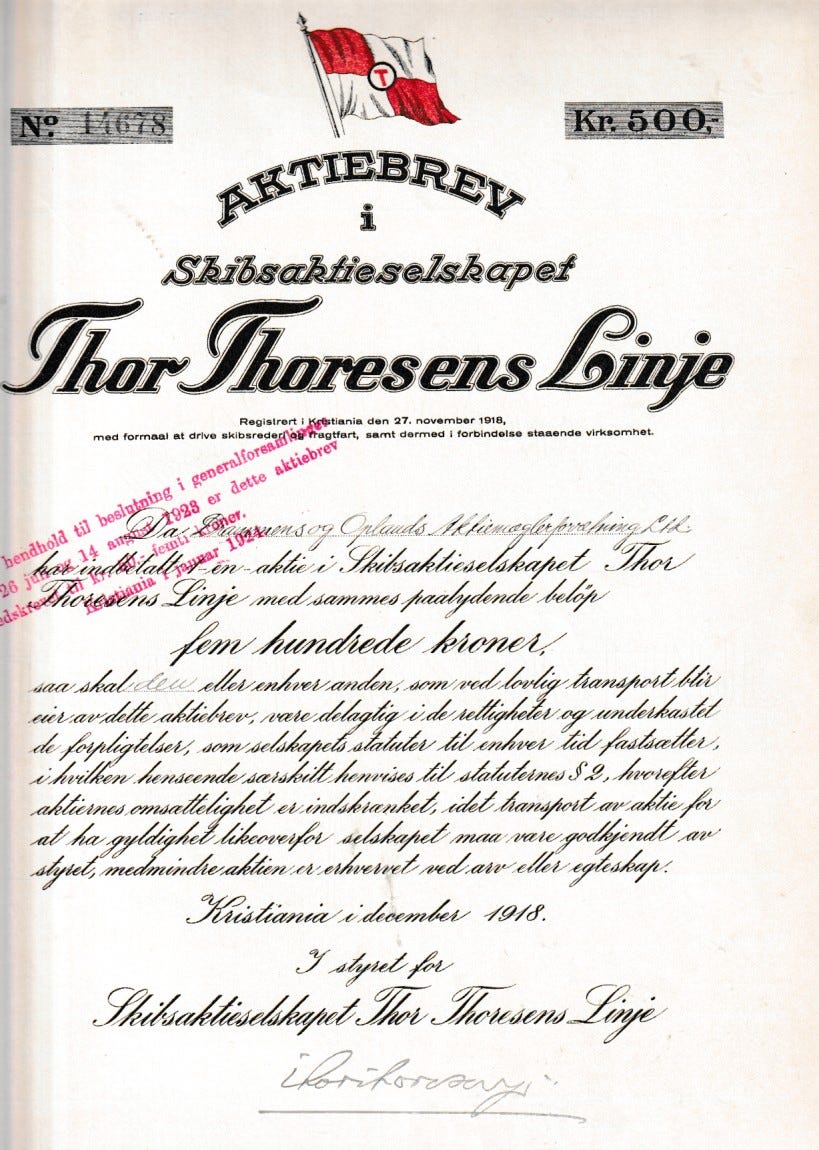 T
No. 14678
Kr. 500,-
AKTIEBREV
i
Skibsaktieselskapet
Thor Thoresens Linje
Registrert i Kristiania den 27. november 1918,
med formaal at drive skibsrederi og fragtfart, samt dermed i forbindelse staaende virksomhet.
hendhold til beslutning i generalforsamlinger
26 juli og 14 august 1923 er dette aktiebrev
nedskrevet til kr. 50,- femti kroner.
Kristiania i januar
Da Drammens og Oplands Aktiemæglerforretning Ltd.
har indbetalt - en - aktie i Skibsaktieselskapet Thor
Thoresens Linje med sammes paalydende beløp
fem hundrede kroner,
saa skal den eller enhver anden, som ved lovlig transport blir
eier av dette aktiebrev, være delagtig i de rettigheter og underkastet
de forpligtelser, som selskapets statuter til enhver tid fastsætter,
i hvilken henseende særskilt henvises til statuternes § 2, hvorefter
aktiernes omsættelighet er indskrænket, idet transport av aktie for
at ha gyldighet likeoverfor selskapet maa være godkjendt av
styret, medmindre aktien er erhvervet ved arv eller egteskap.
Kristiania i december 1918.
I styret for
Skibsaktieselskapet Thor Thoresens Linje